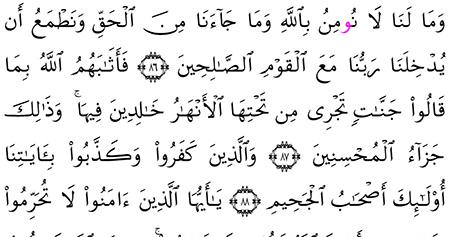 وَمَا لَنَا لَا نُومِنُ بِٱللَّهِ وَمَا جَآءَنَا مِنَ ٱلْحَقِّ وَنَطْمَعُ أَن
يُدْخِلَنَا رَبُّنَا مَعَ ٱلْقَوْمِ ٱلصَّٰلِحِينَ ٨٦ فَأَثَٰبَهُمُ ٱللَّهُ بِمَا
قَالُوا۟ جَنَّٰتٍ تَجْرِى مِن تَحْتِهَا ٱلْأَنْهَٰرُ خَٰلِدِينَ فِيهَا ۚ وَذَٰلِكَ
جَزَآءُ ٱلْمُحْسِنِينَ ٨٧ وَٱلَّذِينَ كَفَرُوا۟ وَكَذَّبُوا۟ بِـَٔايَٰتِنَا
أُو۟لَٰٓئِكَ أَصْحَٰبُ ٱلْجَحِيمِ ٨٨ يَٰٓأَيُّهَا ٱلَّذِينَ ءَامَنُوا۟ لَا تُحَرِّمُوا۟